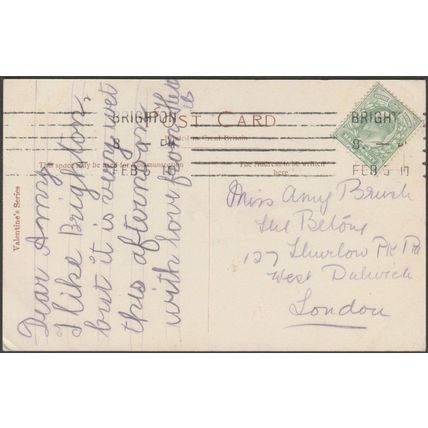 POST CARD
Printed in Great Britain
This space may be used for communication
The Address to be written
here
Valentine's Series
BRIGHTON
8 PM
FEB 5 10
BRIGHT
8
FEB 5 1
Dear Amy
I like Brighton,
but it is very wet
this afternoon
with love from
Miss Amy Brush
127 Thurlow Pk Rd
West Dulwich
London